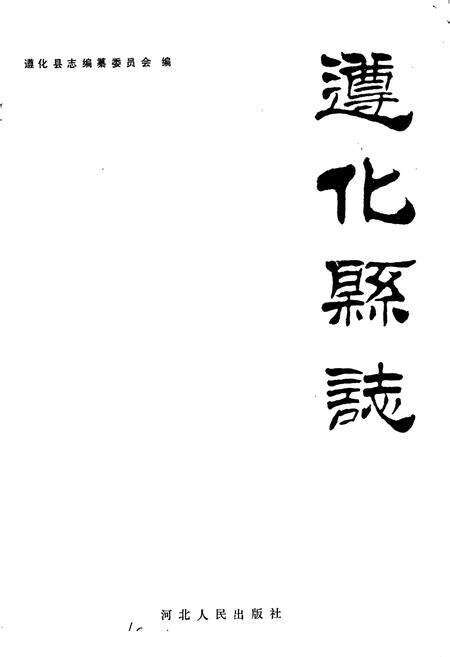 遵化县志编纂委员会 编
遵化縣誌
河北人民出版社